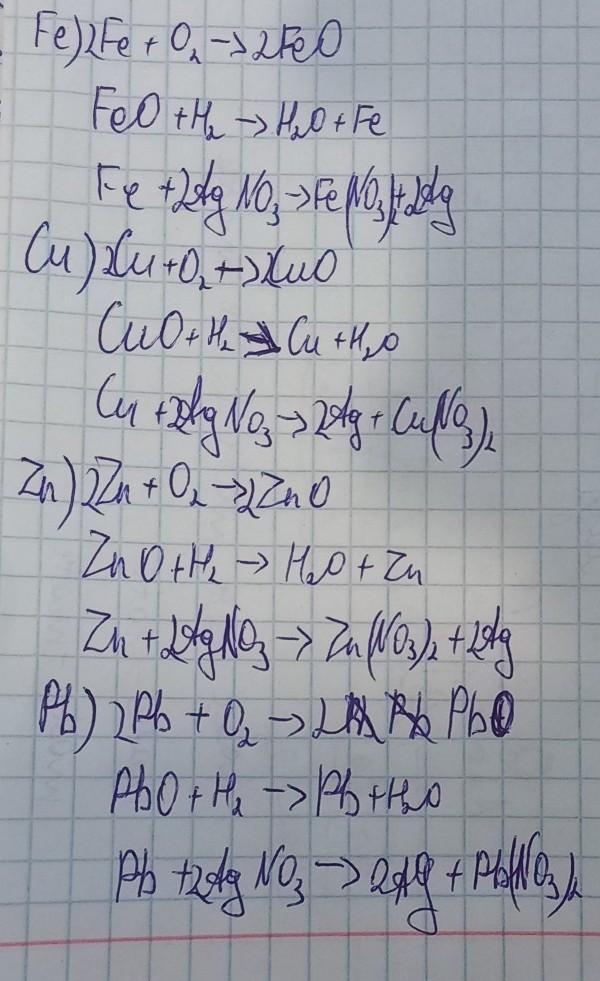 Fe) 2Fe + O₂ → 2FeO
FeO + H₂ → H₂O + Fe
Fe + 2AgNO₃ → Fe(NO₃)₂ + 2Ag
Cu) 2Cu + O₂ → 2CuO
CuO + H₂ → Cu + H₂O
Cu + 2AgNO₃ → 2Ag + Cu(NO₃)₂
Zn) 2Zn + O₂ → 2ZnO
ZnO + H₂ → H₂O + Zn
Zn + 2AgNO₃ → Zn(NO₃)₂ + 2Ag
Pb) 2Pb + O₂ → 2 PbO
PbO + H₂ → Pb + H₂O
Pb + 2AgNO₃ → 2Ag + Pb(NO₃)₂